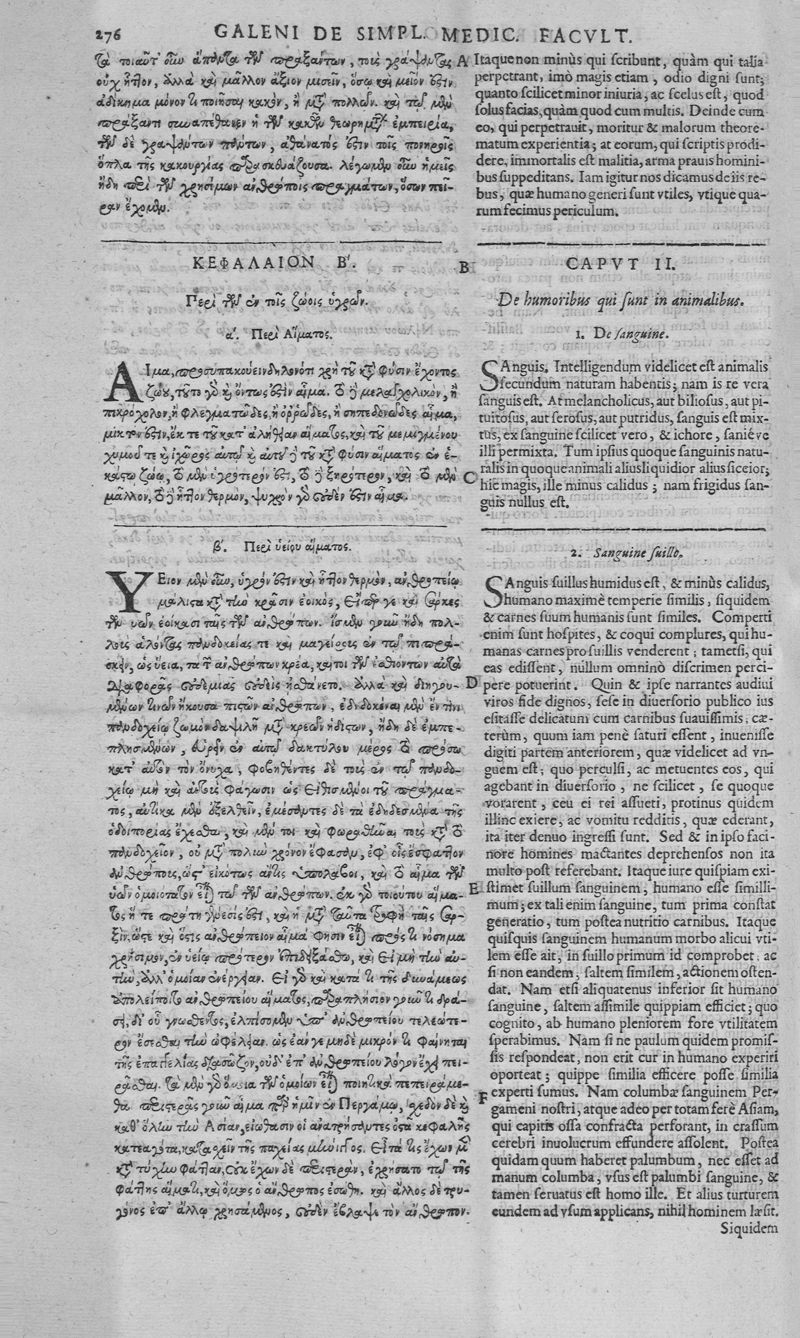 276 GALENI DE SIMPL. MEDIC. FACVLT.
τὰ τοιαῦτ' οὖν ἅπαντα τῶν πραξάντων, τοὺς γράψαντας
οὐχ ἧττον, ἀλλὰ καὶ μᾶλλον ἄξιον μισεῖν, ὅσῳ καὶ μεῖόν ἐστιν
ἀδίκημα μόνον τι ποιῆσαι κακὸν, ἢ μετὰ πολλῶν. καὶ τῷ μὲν
πράξαντι συναπέθανεν ἡ τῶν κακῶν θεωρημάτων ἐμπειρία,
τῶν δὲ γραψάντων πάντων, ἀθάνατός ἐστιν τοῖς πονηροῖς
ὅπλα τῆς κακουργίας παρασκευάζουσα. λέγωμεν οὖν ἡμεῖς
ἤδη περὶ τῶν χρησίμων ἀνθρώποις πραγμάτων, ὅσων πεῖ-
ραν ἔχομεν.
ΚΕΦΑΛΑΙΟΝ Β'.
Περὶ τῶν ἐν τοῖς ζώοις ὑγρῶν.
α'. Περὶ Αἵματος.
ΑΙμα, προσυπακούειν δηλονότι χρὴ τοῦ κατὰ φύσιν ἔχοντος
ζώου, τοῦτο γὰρ καὶ ὄντως ἐστὶν αἷμα. τὸ δὲ μελαγχολικὸν, ἢ
πικρόχολον, ἢ φλεγματῶδες, ἢ ὀρρῶδες, ἢ σηπεδονῶδες αἷμα,
μικτόν ἐστιν, ἔκ τε τοῦ κατ' ἀλήθειαν αἵματος, καὶ τοῦ μεμιγμένου
χυμοῦ τε καὶ ἰχῶρος αὐτῷ καὶ αὐτοῦ δὲ τοῦ κατὰ φύσιν αἵματος ἐν ἑ-
κάστῳ ζώῳ, τὸ μὲν ὑγρότερόν ἐστι, τὸ δὲ ξηρότερον, καὶ τὸ μὲν
μᾶλλον, τὸ δὲ ἧττον θερμὸν, ψυχρὸν γὰρ οὐδέν ἐστιν αἷμα.
β'. Περὶ ὑείου αἵματος.
ΥΕιον μὲν οὖν, ὑγρόν ἐστιν καὶ ἧττον θερμὸν, ἀνθρωπείῳ
μάλιστα κατὰ τὴν κρᾶσιν ἐοικός, εἴπερ γε καὶ σάρκες
τῶν ὑῶν ἐοίκασι ταῖς τῶν ἀνθρώπων. ἴσμεν γοῦν ἤδη πολ-
λοὺς ἁλόντας πανδοκέας τε καὶ μαγείρους ἐν τῷ πιπρά-
σκειν, ὡς ὕεια, τὰ τῶν ἀνθρώπων κρέα, καίτοι τῶν ἐσθιόντων αὐτὰ
διαφορᾶς οὐδεμιᾶς οὐδεὶς ᾐσθάνετο. ἀλλὰ καὶ διηγου-
μένων τινῶν ἤκουσα πιστῶν ἀνθρώπων, ἐδηδοκέναι μὲν ἔν τινι
πανδοχείῳ ζωμὸν δαψιλῆ μετὰ κρεῶν ἡδίστων, ἤδη δὲ ἐμπε-
πλησμένων, εὑρεῖν ἐν αὐτῷ δακτύλου μέρος τὸ πρόσω
κατ' αὐτὸν τὸν ὄνυχα, φοβηθέντες δὲ τοὺς ἐν τῷ πανδο-
χείῳ μὴ καὶ αὐτοὺς φάγωσιν ὡς εἰθισμένοι τοῦ πράγμα-
τος, αὐτίκα μὲν ἐξελθεῖν, ἐμέσαντες δὲ τὰ ἐδηδεσμένα τῆς
ὁδοιπορίας ἔχεσθαι, καὶ μέν τοι καὶ φωραθῆναι τοὺς ἐκ τοῦ
πανδοχείου, οὐ μετὰ πολὺν χρόνον ἔφασαν, ἐφ' οἷς ἔσφαττον
ἀνθρώποις, ὥστ' εἰκότως ἄν τις ὑπολάβοι, καὶ τὸ αἷμα τῶν
ὑῶν ὁμοιότατον εἶναι τῷ τῶν ἀνθρώπων. ἐκ γὰρ τοιούτου αἵμα-
τος ἥ τε πρώτη γένεσίς ἐστι, καὶ ἡ μετὰ ταῦτα τροφὴ ταῖς σαρ-
ξίν, ὥστε καὶ ὅστις ἀνθρώπειον αἷμά φησιν εἶναι πρός τι νόσημα
χρήσιμον, ἐν ὑείῳ πρότερον ἐπιδειξάσθω, καὶ εἰ μὴ τὴν αὐ-
τὴν, ἀλλ' ὁμοίαν ἐνέργειαν. εἰ γὰρ καὶ κατά τι τῆς δυνάμεως
ἀπολείποιτο ἀνθρωπείου αἵματος, παραπλήσιον γοῦν τι δρά-
σει, δι' οὗ γνωσθέντος, ἐλπίσομεν ὑπ' ἀνθρωπείου τελεώτε-
ρον ἔσεσθαι τὴν ὠφέλειαν. ὡς ἐάν γε μηδὲ μικρὸν τι φαίνηται
τῆς ἐπαγγελίας διασῶζον, οὐδ' ἐπ' ἀνθρωπείου λόγον ἔχει πει-
ρᾶσθαι. τὰ μὲν γὰρ ὅμοια τῶν ὁμοίων εἶναι ποιητικὰ πεπειράμε-
θα περιστερᾶς γοῦν αἷμα παρ' ἡμῖν ἐν Περγάμῳ, σχεδὸν δὲ καὶ
καθ' ὅλην τὴν Ἀσίαν, εἰώθασιν οἱ ἀνατρήσαντες ὀστᾶ κεφαλῆς
κατεαγότα, καταχεῖν τῆς παχείας μήνιγγος. εἶτά τις ἔχων μὲν
κατὰ τύχην φάτταν, οὐκ ἔχων δὲ περιστερὰν, ἐχρήσατο τῷ τῆς
φάττης αἵματι, καὶ ὅμως ὁ ἄνθρωπος ἐσώθη. καὶ ἄλλος δὲ τρυ-
γόνος ἐπ' ἄλλῳ χρησάμενος, οὐδὲν ἔβλαψε τὸν ἄνθρωπον.
A Itaque non minùs qui scribunt, quàm qui talia
perpetrant, imò magis etiam, odio digni sunt;
quanto scilicet minor iniuria, ac scelus est, quod
solus facias, quàm quod cum multis. Deinde cum
eo, qui perpetrauit, moritur & malorum theore-
matum experientia; at eorum, qui scriptis prodi-
dere, immortalis est malitia, arma prauis homini-
bus suppeditans. Iam igitur nos dicamus de iis re-
bus, quæ humano generi sunt vtiles, vtique qua-
rum fecimus periculum.
B CAPVT II.
De humoribus qui sunt in animalibus.
1. De sanguine.
SAnguis. Intelligendum videlicet est animalis
secundum naturam habentis; nam is re vera
sanguis est. At melancholicus, aut biliosus, aut pi-
tuitosus, aut serosus, aut putridus, sanguis est mix-
tus, ex sanguine scilicet vero, & ichore, saniéve
illi permixta. Tum ipsius quoque sanguinis natu-
ralis in quoque animali alius liquidior alius siccior;
C hic magis, ille minus calidus; nam frigidus san-
guis nullus est.
2. Sanguine suillo.
SAnguis suillus humidus est, & minùs calidus,
humano maximè temperie similis, siquidem
& carnes suum humanis sunt similes. Comperti
enim sunt hospites, & coqui complures, qui hu-
manas carnes pro suillis venderent; tametsi, qui
eas edissent, nullum omninò discrimen perci-
D pere potuerint. Quin & ipse narrantes audiui
viros fide dignos, sese in diuersorio publico ius
esitasse delicatum cum carnibus suauissimis; cæ-
terùm, quum iam penè saturi essent, inuenisse
digiti partem anteriorem, quæ videlicet ad vn-
guem est; quo perculsi, ac metuentes eos, qui
agebant in diuersorio, ne scilicet, se quoque
vorarent, ceu ei rei assueti, protinus quidem
illinc exiere, ac vomitu redditis, quæ ederant,
ita iter denuo ingressi sunt. Sed & in ipso faci-
nore homines mactantes deprehensos non ita
multo post referebant. Itaque iure quispiam exi-
E stimet suillum sanguinem, humano esse simillí-
mum; ex tali enim sanguine, tum prima constat
generatio, tum postea nutritio carnibus. Itaque
quisquis sanguinem humanum morbo alicui vti-
lem esse ait, in suillo primum id comprobet: ac
si non eandem, saltem similem, actionem osten-
dat. Nam etsi aliquatenus inferior sit humano
sanguine, saltem assimile quippiam efficiet; quo
cognito, ab humano pleniorem fore vtilitatem
sperabimus. Nam si ne paulum quidem promis-
sis respondeat, non erit cur in humano experiri
oporteat; quippe similia efficere posse similia
F experti sumus. Nam columbæ sanguinem Per-
gameni nostri, atque adeo per totam ferè Asiam,
qui capitis ossa confracta perforant, in crassum
cerebri inuolucrum effundere assolent. Postea
quidam quum haberet palumbum, nec esset ad
manum columba, vsus est palumbi sanguine, &
tamen seruatus est homo ille. Et alius turturem
eundem ad vsum applicans, nihil hominem læsit.
Siquidem